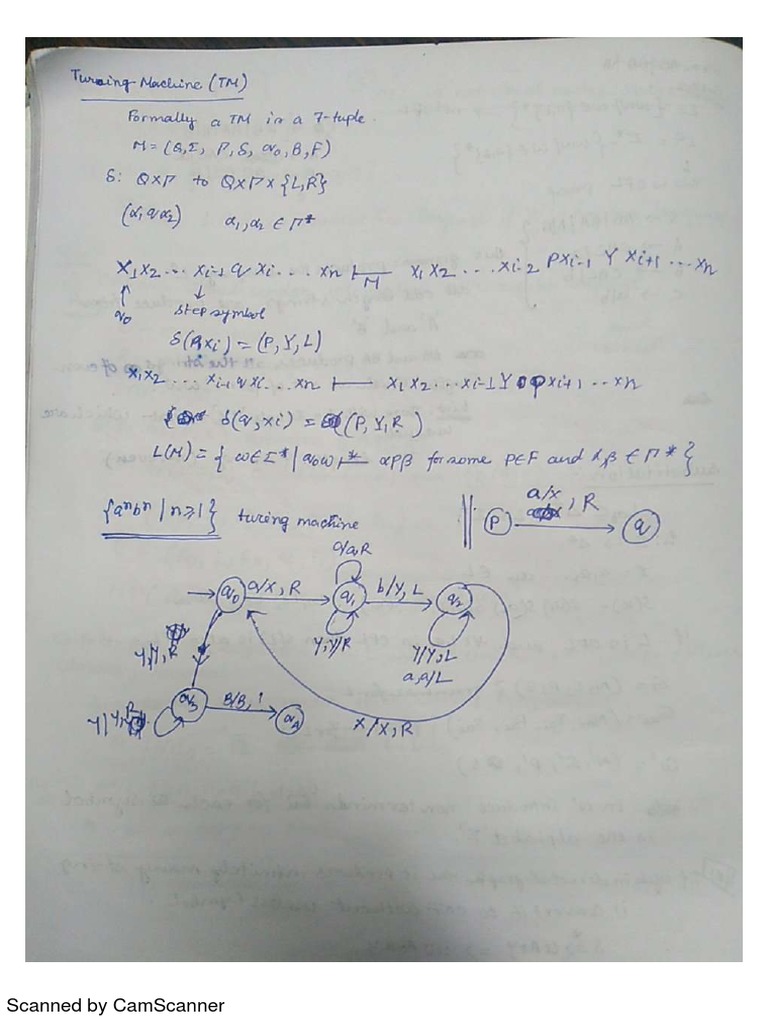 Turing Machine (TM)
Formally a TM is a 7-tuple.
M = (Q, Σ, Γ, δ, q₀, B, F)
δ: Q×Γ to Q×Γ×{L,R}
(α₁ q α₂) α₁, α₂ ∈ Γ*
X₁X₂ ... Xi-1 q Xi ... Xn ⊢M X₁X₂ ... Xi-2 P Xi-1 Y Xi+1 ... Xn
↑ ↓
q₀ Step symbol
δ(q, Xi) = (P, Y, L)
X₁X₂ ... Xi-1 q Xi ... Xn ⊢ X₁X₂ ... Xi-1 Y P Xi+1 ... Xn
δ(q, Xi) = (P, Y, R)
L(M) = { w ∈ Σ* | q₀w ⊢* αPβ for some P∈F and α,β ∈ Γ* }
{aⁿbⁿ | n≥1} turing machine
a/x, R
P q
a/a, R
q₀ a/X, R q₁ b/Y, L q₂
Y, Y/R
Y/Y, L
a, a/L
Y/Y, R
q₃ B/B,
Y/Y, R
X/X, R
Scanned by CamScanner